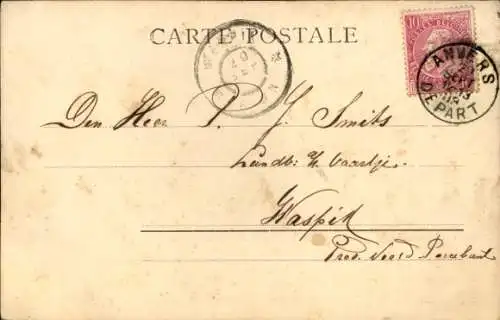 CARTE POSTALE
10
ANVERS
DÉPART
Den Heer P. J. Smits
Landb: 't Vaartje.
Waspik
Prov. Noord Brabant